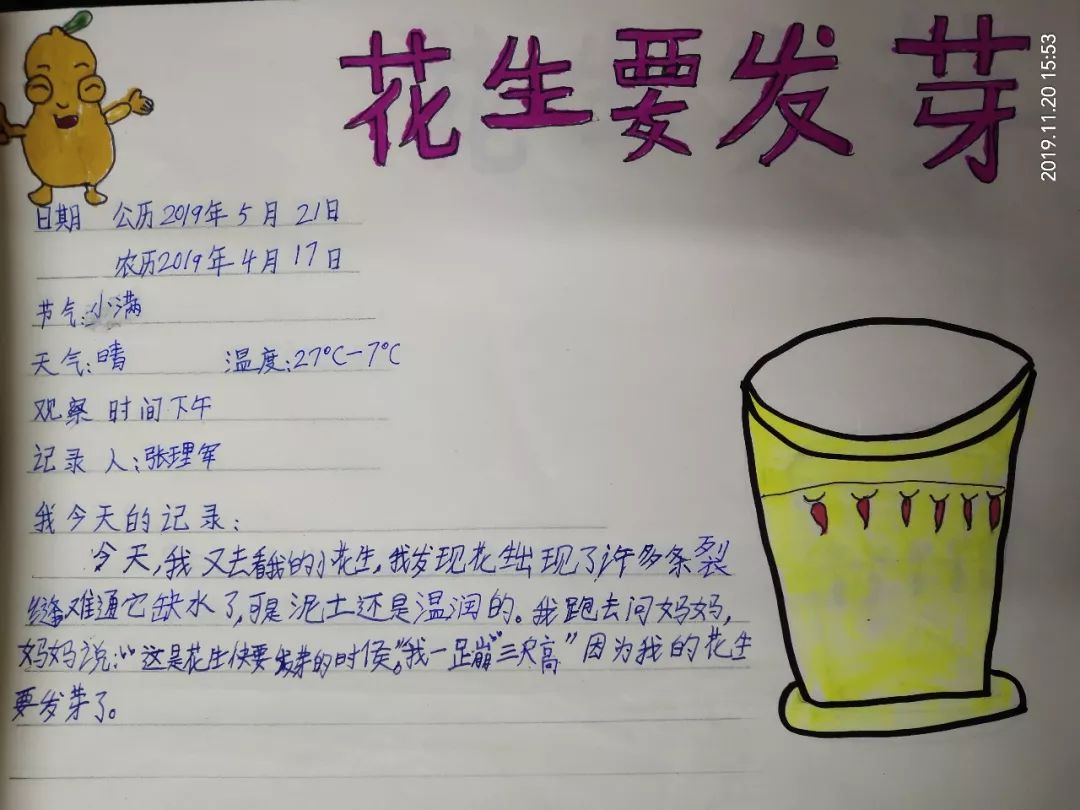 花生要发芽
2019.11.20 15:53
日期 公历2019年5月21日
农历2019年4月17日
节气:小满
天气:晴 温度:27℃-7℃
观察时间下午
记录人:张理军
我今天的记录:
今天,我又去看我的小花生,我发现花生出现了许多条裂
缝难通它缺水了,可是泥土还是温润的。我跑去问妈妈,
妈妈说:“这是花生快要发芽的时侯。”我一蹦“三尺高”因为我的花生
要发芽了。